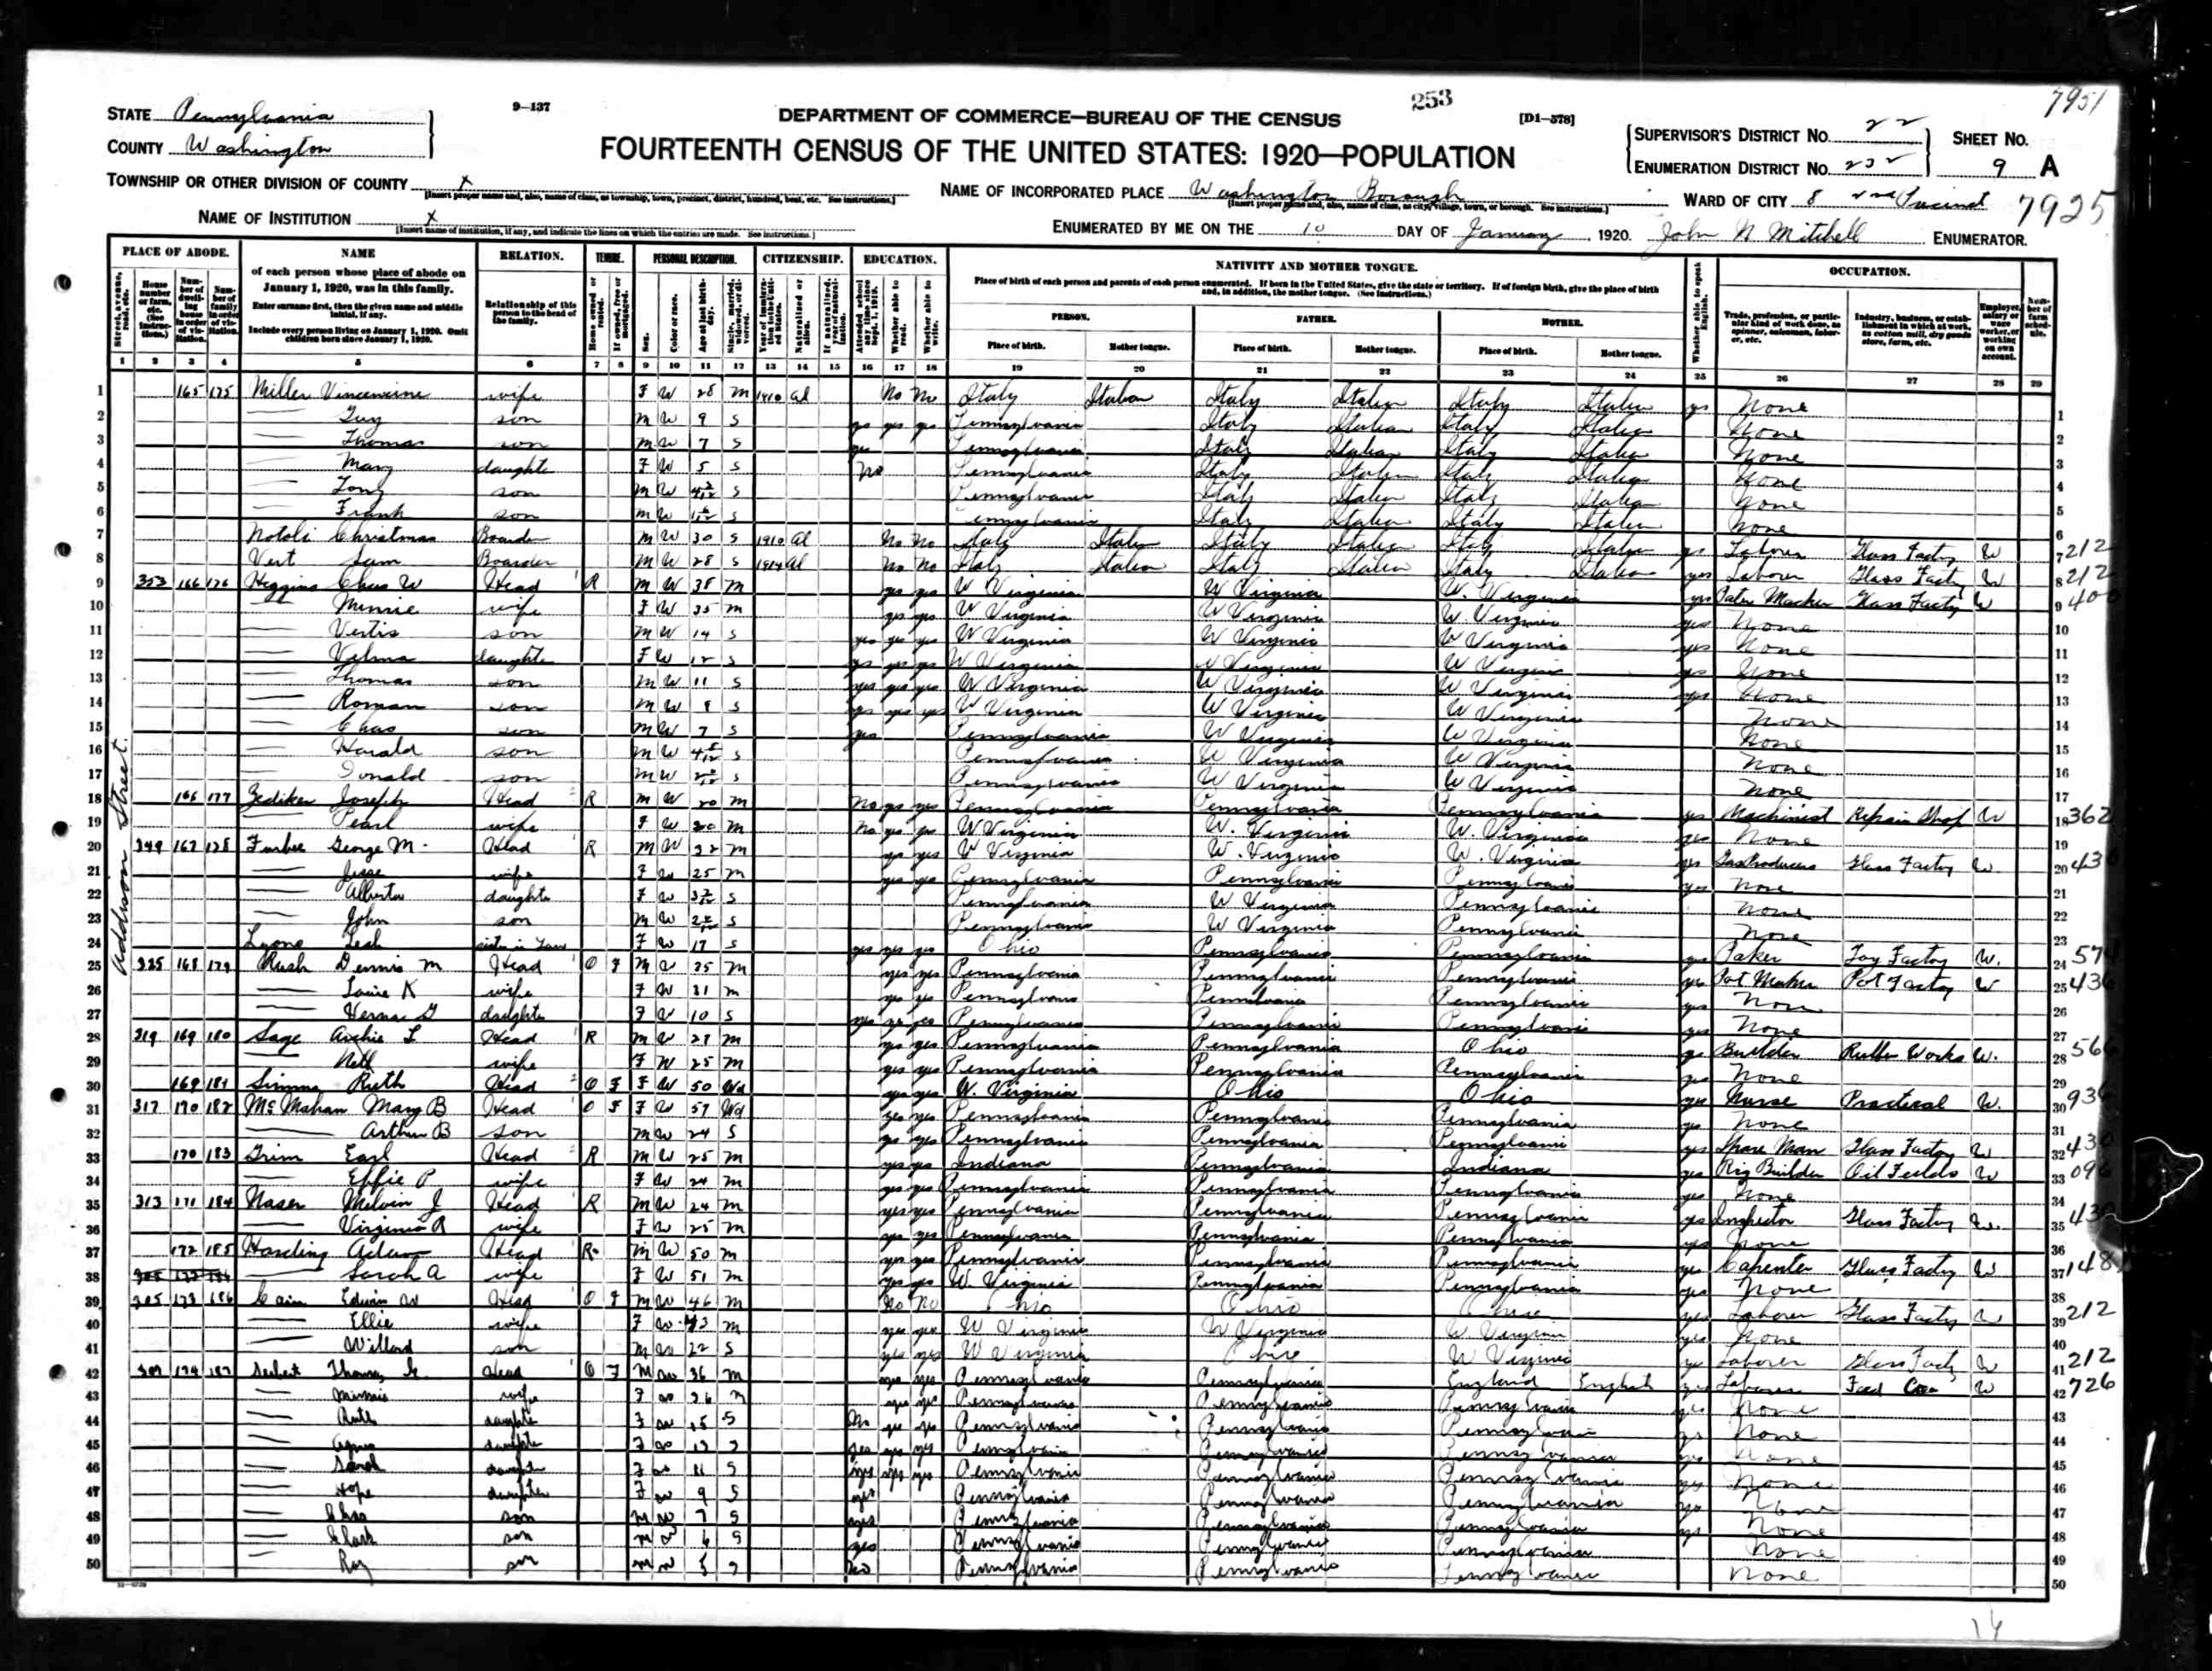 7951
9—137
253
STATE Pennsylvania
DEPARTMENT OF COMMERCE—BUREAU OF THE CENSUS
[D1—578]
COUNTY Washington
FOURTEENTH CENSUS OF THE UNITED STATES: 1920—POPULATION
SUPERVISOR'S DISTRICT No. 22
SHEET No.
ENUMERATION DISTRICT No. 232
9 A
TOWNSHIP OR OTHER DIVISION OF COUNTY x
NAME OF INCORPORATED PLACE Washington Borough
WARD OF CITY 8 2nd Precinct
7925
NAME OF INSTITUTION x
ENUMERATED BY ME ON THE 10 DAY OF January, 1920. John N Mitchell ENUMERATOR.
PLACE OF ABODE. NAME RELATION. TENURE. PERSONAL DESCRIPTION. CITIZENSHIP. EDUCATION. NATIVITY AND MOTHER TONGUE. OCCUPATION.
of each person whose place of abode on January 1, 1920, was in this family.
Enter surname first, then the given name and middle initial, if any.
Include every person living on January 1, 1920. Omit children born since January 1, 1920.
Relationship of this person to the head of the family.
Place of birth of each person and parents of each person enumerated. If born in the United States, give the state or territory. If of foreign birth, give the place of birth and, in addition, the mother tongue. (See instructions.)
PERSON. FATHER. MOTHER.
Place of birth. Mother tongue. Place of birth. Mother tongue. Place of birth. Mother tongue.
1 2 3 4 5 6 7 8 9 10 11 12 13 14 15 16 17 18 19 20 21 22 23 24 25 26 27 28 29
Addison Street
1 165 175 Miller wife F W 28 M 1910 Al No No Italy Italian Italy Italian Italy Italian yes None
2 — Guy son M W 9 S yes yes yes Pennsylvania Italy Italian Italy Italian None
3 — Thomas son M W 7 S yes Pennsylvania Italy Italian Italy Italian None
4 — Mary daughter F W 5 S No Pennsylvania Italy Italian Italy Italian None
5 — Tony son M W S Pennsylvania Italy Italian Italy Italian None
6 — Frank son M W S Pennsylvania Italy Italian Italy Italian None
7 Notoli Christmas Boarder M W 30 S 1910 Al No No Italy Italian Italy Italian Italy Italian yes Laborer Glass Factory W 212
8 Vert Sam Boarder M W 28 S 1914 Al No No Italy Italian Italy Italian Italy Italian yes Laborer Glass Factory W 212
9 353 166 176 Higgins Chas W Head R M W 38 M yes yes W Virginia W Virginia W. Virginia yes Glass Factory W 400
10 — Minnie wife F W 35 M yes yes W Virginia W Virginia W. Virginia yes None
11 — Vertis son M W 14 S yes yes yes W Virginia W Virginia W Virginia yes None
12 — Velma daughter F W 12 S yes yes yes W Virginia W Virginia W Virginia yes None
13 — Thomas son M W 11 S yes yes yes W Virginia W Virginia W Virginia yes None
14 — Roman son M W 8 S yes yes yes W Virginia W Virginia W Virginia None
15 — Chas son M W 7 S yes Pennsylvania W Virginia W Virginia None
16 — Harald son M W S Pennsylvania W Virginia W Virginia None
17 — Donald son M W S Pennsylvania W Virginia W Virginia None
18 166 177 Zediker Joseph Head R M W 20 M No yes yes Pennsylvania Pennsylvania Pennsylvania yes Machinist Repair Shop W 362
19 — Pearl wife F W 20 M No yes yes W Virginia W. Virginia W. Virginia yes None
20 349 167 178 Furbee George M. Head R M W 32 M yes yes W Virginia W. Virginia W. Virginia yes Gas Producer Glass Factory W. 430
21 — wife F W 25 M yes yes Pennsylvania Pennsylvania Pennsylvania yes None
22 — Alberta daughter F W S Pennsylvania W Virginia Pennsylvania None
23 — John son M W S Pennsylvania W Virginia Pennsylvania None
24 Lyons Leah sister in Law F W 17 S yes yes yes Ohio Pennsylvania Pennsylvania yes Paker Toy Factory W. 574
25 325 168 179 Rush Dennis M Head O F M W 35 M yes yes Pennsylvania Pennsylvania Pennsylvania yes Pot Maker Pot Factory W 436
26 — K wife F W 31 M yes yes Pennsylvania Pennsylvania Pennsylvania yes None
27 — Verna G daughter F W 10 S yes yes yes Pennsylvania Pennsylvania Pennsylvania yes None
28 319 169 180 Sage Archie L Head R M W 27 M yes yes Pennsylvania Pennsylvania Ohio yes Builder Rubber Works W. 566
29 — Nell wife F W 25 M yes yes Pennsylvania Pennsylvania Pennsylvania yes None
30 169 181 Simms Ruth Head O F F W 50 Wd yes yes W. Virginia Ohio Ohio yes Nurse Practical W. 936
31 317 170 182 McMahan Mary B Head O F F W 57 Wd yes yes Pennsylvania Pennsylvania Pennsylvania yes None
32 — Arthur B son M W 24 S yes yes Pennsylvania Pennsylvania Pennsylvania yes Spare Man Glass Factory W 430
33 170 183 Grim Earl Head R M W 25 M yes yes Indiana Pennsylvania Indiana yes Rig Builder Oil Fields W 096
34 — Effie P wife F W 24 M yes yes Pennsylvania Pennsylvania Pennsylvania yes None
35 313 171 184 Naser Melvin J Head R M W 24 M yes yes Pennsylvania Pennsylvania Pennsylvania yes Inspector Glass Factory W.
36 — Virginia R wife F W 25 M yes yes Pennsylvania Pennsylvania Pennsylvania yes None
37 172 185 Harding Adam Head R M W 50 M yes yes Pennsylvania Pennsylvania Pennsylvania yes Capenter Glass Factory W 148
38 — Sarah A wife F W 51 M yes yes W. Virginia Pennsylvania Pennsylvania yes None
39 305 173 186 Cain Edwin W Head O F M W 46 M No No Ohio Ohio Ohio yes Laborer Glass Factory W 212
40 — Ellie wife F W 43 M yes yes W Virginia W Virginia W Virginia yes None
41 — Willard son M W 22 S yes yes W Virginia Ohio W Virginia yes Laborer Glass Facty W 212
42 174 187 Thomas Head O F M W 36 M yes yes Pennsylvania Pennsylvania England English yes Laborer W 726
43 — Minnie wife F W 36 M yes yes Pennsylvania Pennsylvania Pennsylvania yes None
44 — Ruth daughter F W 15 S No yes yes Pennsylvania Pennsylvania Pennsylvania yes None
45 — Agnes daughter F W 13 S yes yes yes Pennsylvania Pennsylvania Pennsylvania yes None
46 — Sarah daughter F W 11 S yes yes yes Pennsylvania Pennsylvania Pennsylvania yes None
47 — Hope daughter F W 9 S yes Pennsylvania Pennsylvania Pennsylvania yes None
48 — Chas son M W 7 S yes Pennsylvania Pennsylvania Pennsylvania yes None
49 — Clark son M W 6 S yes Pennsylvania Pennsylvania Pennsylvania None
50 — Roy son M W 5 S No Pennsylvania Pennsylvania Pennsylvania None
14